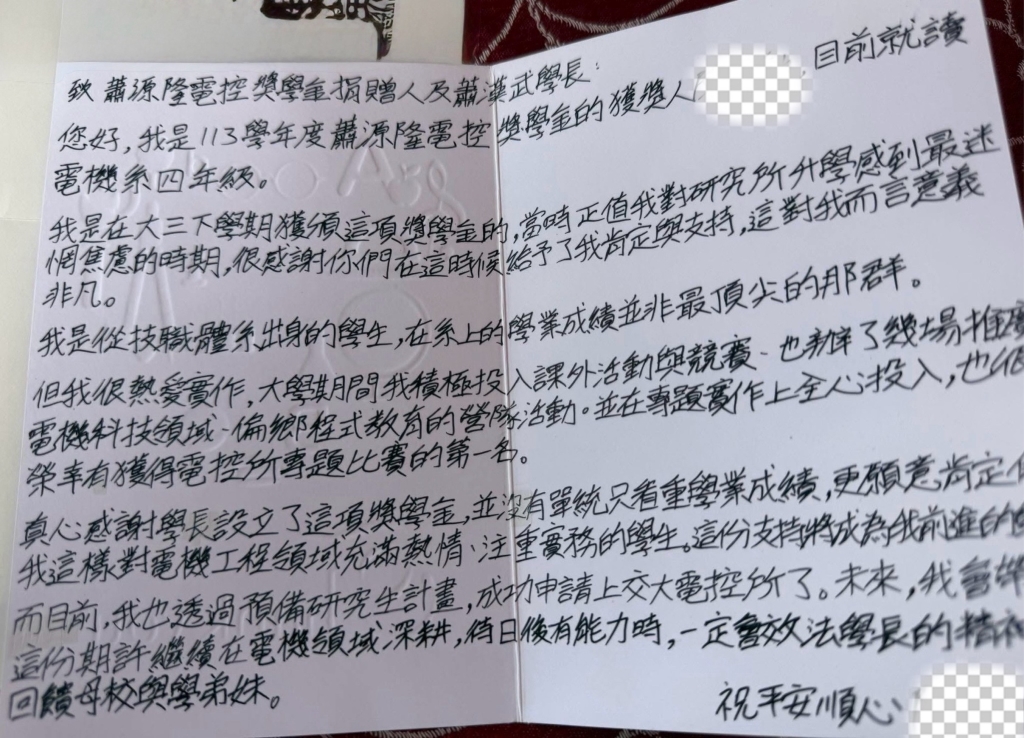 致 蕭源隆電控獎學金捐贈人及蕭漢武學長：
您好，我是113學年度蕭源隆電控獎學金的獲獎人，目前就讀
電機系四年級。
我是在大三下學期獲頒這項獎學金的，當時正值我對研究所升學感到最迷
惘焦慮的時期，很感謝你們在這時候給予了我肯定與支持，這對我而言意義
非凡。
我是從技職體系出身的學生，在系上的學業成績並非最頂尖的那群。
但我很熱愛實作，大學期間我積極投入課外活動與競賽、也辦了幾場推廣
電機科技領域、偏鄉程式教育的營隊活動。並在專題實作上全心投入，也很
榮幸有獲得電控所專題比賽的第一名。
真心感謝學長設立了這項獎學金，並沒有單統只看重學業成績，更願意肯定
我這樣對電機工程領域充滿熱情、注重實務的學生。這份支持將成為我前進的
而目前，我也透過預備研究生計畫，成功申請上交大電控所了。未來，我會
這份期許繼續在電機領域深耕，待日後有能力時，一定會效法學長的精
回饋母校與學弟妹。
祝平安順心、